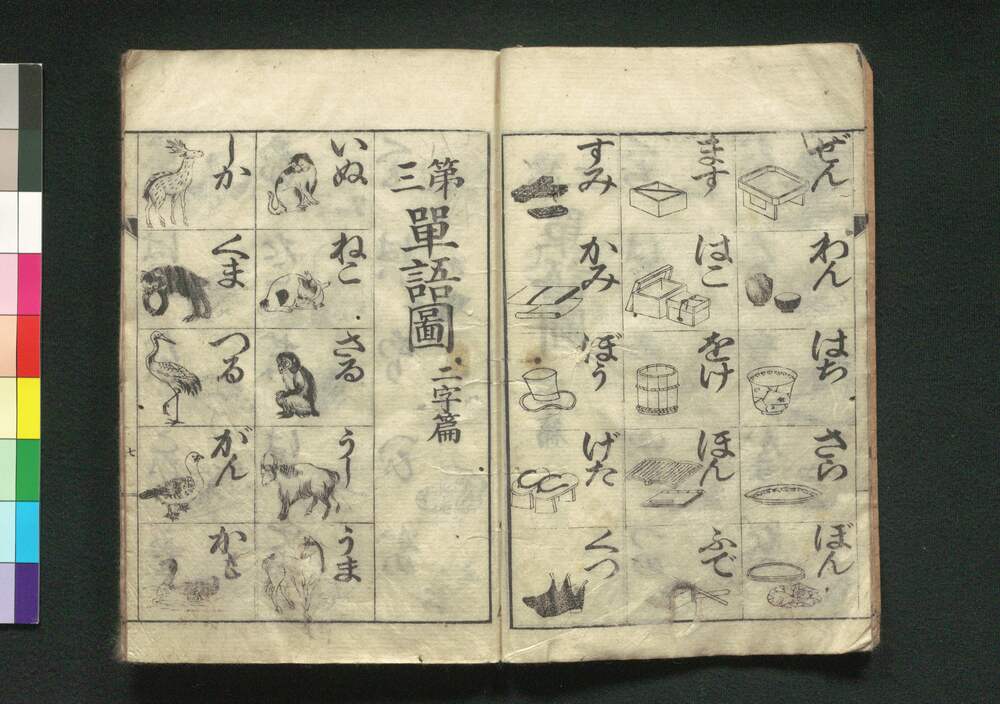 ぜん
わん
はち
さら
ぼん
ます
はこ
をけ
ほん
ふで
すみ
かみ
ぼう
げた
くつ
第三 單語圖 二字篇
いぬ
ねこ
さる
うし
うま
しか
くま
つる
がん
かも
七